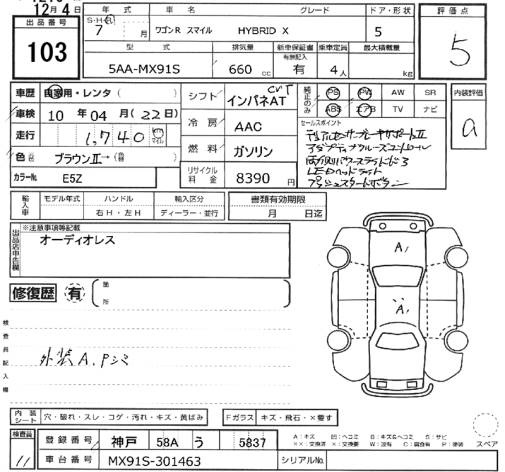 12月4日
出品番号
103
年式
車名
グレード
ドア・形状
評価点
S・H・R
7
月
ワゴンR スマイル
HYBRID X
5
5
型式
排気量
新車保証書
有無記入
乗車定員
最大積載量
5AA-MX91S
660 cc
有
4人
kg
車歴
自家用・レンタ( )
シフト
インパネAT
CVT
純正のみ
PS
PW
AW
SR
ABS
エアB
TV
ナビ
内装評価
a
車検
10年04月(22日)
冷房
AAC
セールスポイント
デュアルセンサーブレーキサポートⅡ
アダプティブクルーズコントロール
両側パワースライドドア
LEDヘッドライト
プッシュスタートボタン
走行
1,740
km
マイル
色
ブラウンⅡ→( )
燃料
ガソリン
カラーNo.
E5Z
リサイクル料金
8390円
輸入車
モデル年式
ハンドル
輸入区分
書類有効期限
年
右H・左H
ディーラー・並行
月 日迄
出品店申告欄
※注意事項等記載
オーディオレス
修復歴
有
箇所
検査員記入欄
外装A,Pシミ
A1
A1
内装シート
穴・破れ・スレ・コゲ・汚れ・キズ・黄ばみ
Fガラス
キズ・飛石・X要す
検査員
11
登録番号
神戸 58A う 5837
車台番号
MX91S-301463
シリアルNo.
A:キズ
U:ヘコミ
B:キズ&ヘコミ
S:サビ
XX:交換済
X:要交換
W:波有
C:腐食有
P:塗装
スペア